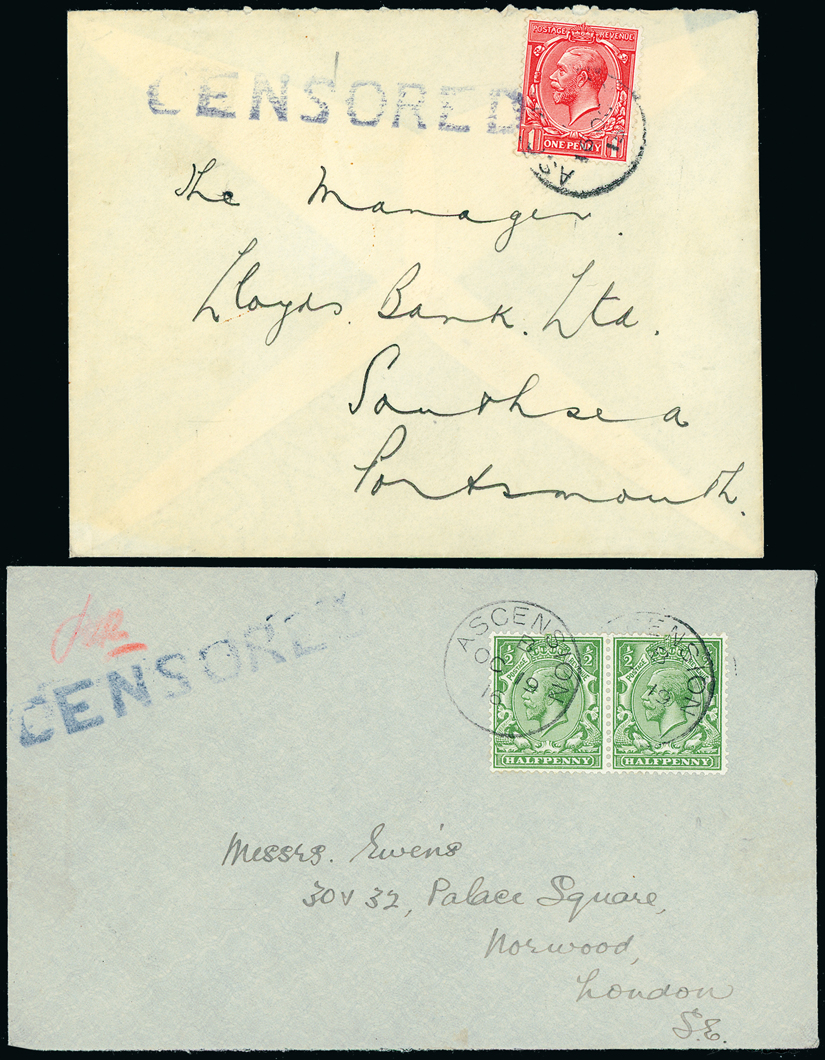 CENSORED
POSTAGE REVENUE
1 ONE PENNY 1
AS
The Manager.
Lloyds. Bank. Ltd.
Southsea
Portsmouth.
CENSORED
ASCENSION
OC
½ ½
POSTAGE
HALFPENNY
ENSION
19
½ ½
HALFPENNY
Messrs. Ewens
30 & 32, Palace Square,
Norwood,
London
S.E.